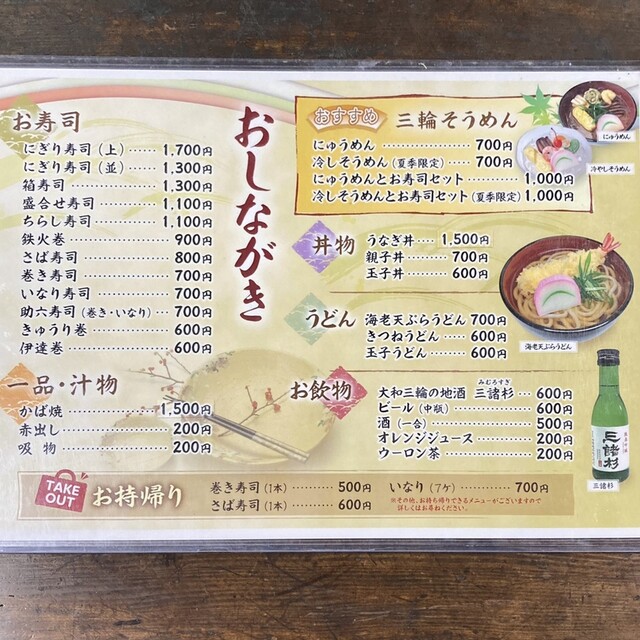 おしながき
お寿司
にぎり寿司（上）… 1,700円
にぎり寿司（並）… 1,300円
箱寿司 …………… 1,300円
盛合せ寿司 ……… 1,100円
ちらし寿司 ……… 1,100円
鉄火巻 …………… 900円
さば寿司 ………… 800円
巻き寿司 ………… 700円
いなり寿司 ……… 700円
助六寿司（巻き・いなり）… 700円
きゅうり巻 ……… 600円
伊達巻 …………… 600円
一品・汁物
かば焼 …………… 1,500円
赤出し …………… 200円
吸物 ……………… 200円
おすすめ 三輪そうめん
にゅうめん ……………… 700円
冷しそうめん（夏季限定）… 700円
にゅうめんとお寿司セット … 1,000円
冷しそうめんとお寿司セット（夏季限定）1,000円
にゅうめん
冷やしそうめん
丼物
うなぎ丼 …… 1,500円
親子丼 ………… 700円
玉子丼 ………… 600円
うどん
海老天ぷらうどん 700円
きつねうどん …… 600円
玉子うどん ……… 600円
海老天ぷらうどん
お飲物
みむろすぎ
大和三輪の地酒 三諸杉 … 600円
ビール（中瓶）………… 600円
酒（一合）……………… 500円
オレンジジュース ……… 200円
ウーロン茶 ……………… 200円
三諸杉
三諸杉
TAKE OUT
お持帰り
巻き寿司（1本）……… 500円
さば寿司（1本）……… 600円
いなり（7ケ）……… 700円
※その他、お持ち帰りできるメニューがございますので
詳しくはお尋ねください。